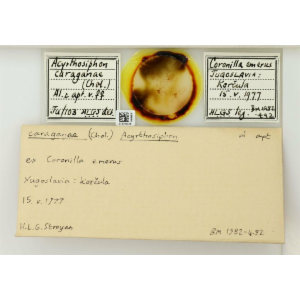 Acyrthosiphon
caraganae
(Chol.)
Al. & apt. v. ff
HLGS det.
Coronilla emerus
Jugoslavia:
Korčula
15.v.1977
BM 1982
HLGS leg. -492
caraganae (Chol.) Acyrthosiphon al apt
ex Coronilla emerus
Yugoslavia: Korčula
15.v.1977
H.L.G. Stroyan BM 1982-492